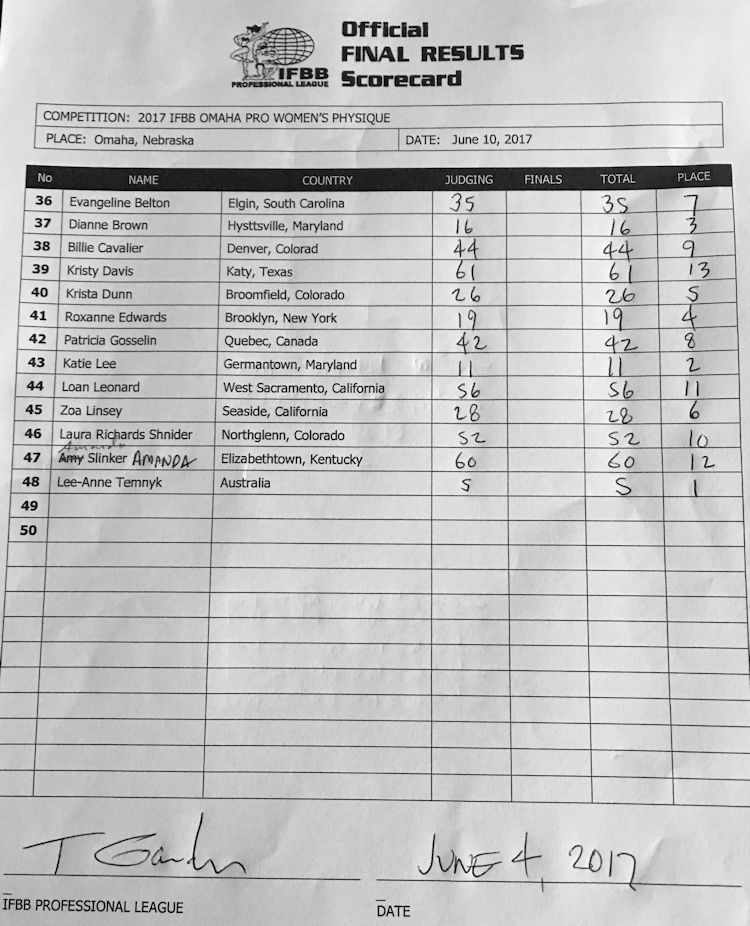 Official
FINAL RESULTS
Scorecard
IFBB
PROFESSIONAL LEAGUE
COMPETITION: 2017 IFBB OMAHA PRO WOMEN'S PHYSIQUE
PLACE: Omaha, Nebraska DATE: June 10, 2017
No NAME COUNTRY JUDGING FINALS TOTAL PLACE
36 Evangeline Belton Elgin, South Carolina 35 35 7
37 Dianne Brown Hysttsville, Maryland 16 16 3
38 Billie Cavalier Denver, Colorad 44 44 9
39 Kristy Davis Katy, Texas 61 61 13
40 Krista Dunn Broomfield, Colorado 26 26 5
41 Roxanne Edwards Brooklyn, New York 19 19 4
42 Patricia Gosselin Quebec, Canada 42 42 8
43 Katie Lee Germantown, Maryland 11 11 2
44 Loan Leonard West Sacramento, California 56 56 11
45 Zoa Linsey Seaside, California 28 28 6
46 Laura Richards Shnider Northglenn, Colorado 52 52 10
Amanda
47 Amy Slinker AMANDA Elizabethtown, Kentucky 60 60 12
48 Lee-Anne Temnyk Australia 5 5 1
49
50
JUNE 4, 2017
IFBB PROFESSIONAL LEAGUE DATE